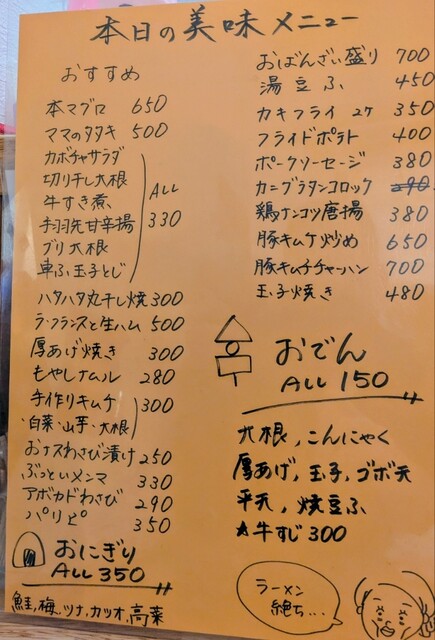 本日の美味メニュー
おすすめ
本マグロ 650
ママのタタキ 500
カボチャサラダ
切り干し大根
牛すき煮
手羽先甘辛揚
ブリ大根
車ふ玉子とじ
ALL
330
ハタハタ丸干し焼 300
ラ・フランスと生ハム 500
厚あげ焼き 300
もやしナムル 280
手作りキムチ
・白菜・山芋・大根
300
おナスわさび漬け 250
ぶっといメンマ 330
アボカドわさび 290
パリピ 350
おにぎり
ALL 350
鮭, 梅, ツナ, カツオ, 高菜
おばんざい盛り 700
湯豆ふ 450
カキフライ 2ケ 350
フライドポテト 400
ポークソーセージ 380
カニグラタンコロッケ 290
鶏ナンコツ唐揚 380
豚キムチ炒め 650
豚キムチチャーハン 700
玉子焼き 480
おでん
ALL 150
大根, こんにゃく
厚あげ, 玉子, ゴボ天
平天, 焼豆ふ
★牛すじ 300
ラーメン
絶ち...